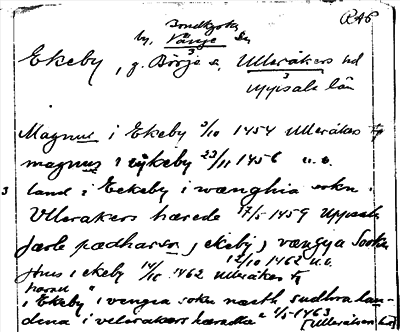 R46
Bondkyrko
by, Vänge sn
Ekeby, g. Börje s, Ulleråkers hd
3
Uppsala län
Magnus i Ekeby 3/10 1454 Ulleråkers tg
magnus i ekeby 23/11 1456 u.o.
3 land i Eekeby i wænghia sokn.
Ullerakers hærede 17/5 1459 Uppsala
Jærle pædharsson j ekeby j vængya Sokn
12/10 1462 u.o.
Jönis i ekeby 14/10 1462 Ulleråkers tg
harad
"i Ekeby i vengia sokn næsth sudhra lan-
dena i vlerakers hæradhe" 2/5 1463
(Ulleråkers hd)